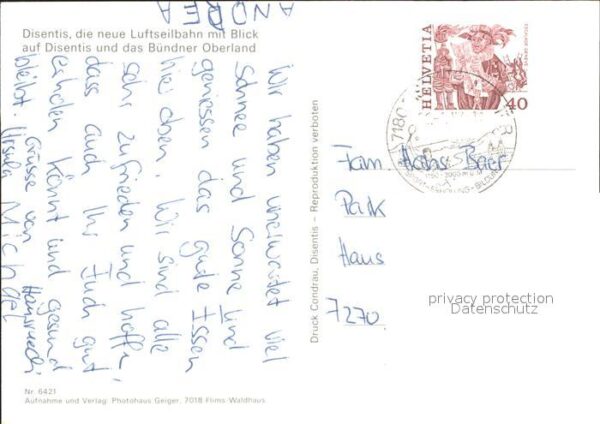 Disentis, die neue Luftseilbahn mit Blick
auf Disentis und das Bündner Oberland
Wir haben unerwartet viel
Schnee und Sonne und
geniessen das gute Essen
hier oben. Wir sind alle
sehr zufrieden und hoffen,
dass auch Ihr Euch gut
erholen könnt und gesund
bleibt. Grüsse von Hansruedi
Ursula Michael
ANDREA
Nr 6421
Aufnahme und Verlag: Photohaus Geiger, 7018 Flims-Waldhaus
Druck Condrau, Disentis – Reproduktion verboten
HELVETIA
ESCALADE GENÈVE
40
7180
SPORT-ERHOLUNG-BILDUNG
Fam Hans Baer
Park
Haus
7270
privacy protection
Datenschutz